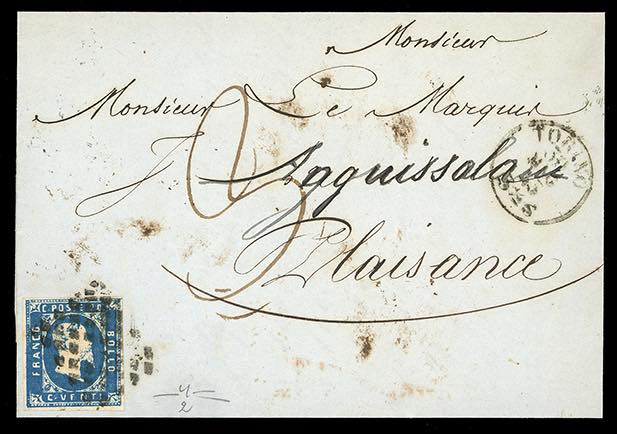 Monsieur
Monsieur Le Marquis
J. Anguissolam
Plaisance
3
TORINO
C. POSTE 20
FRANCO
BOLLO
C. VENTI
4
2